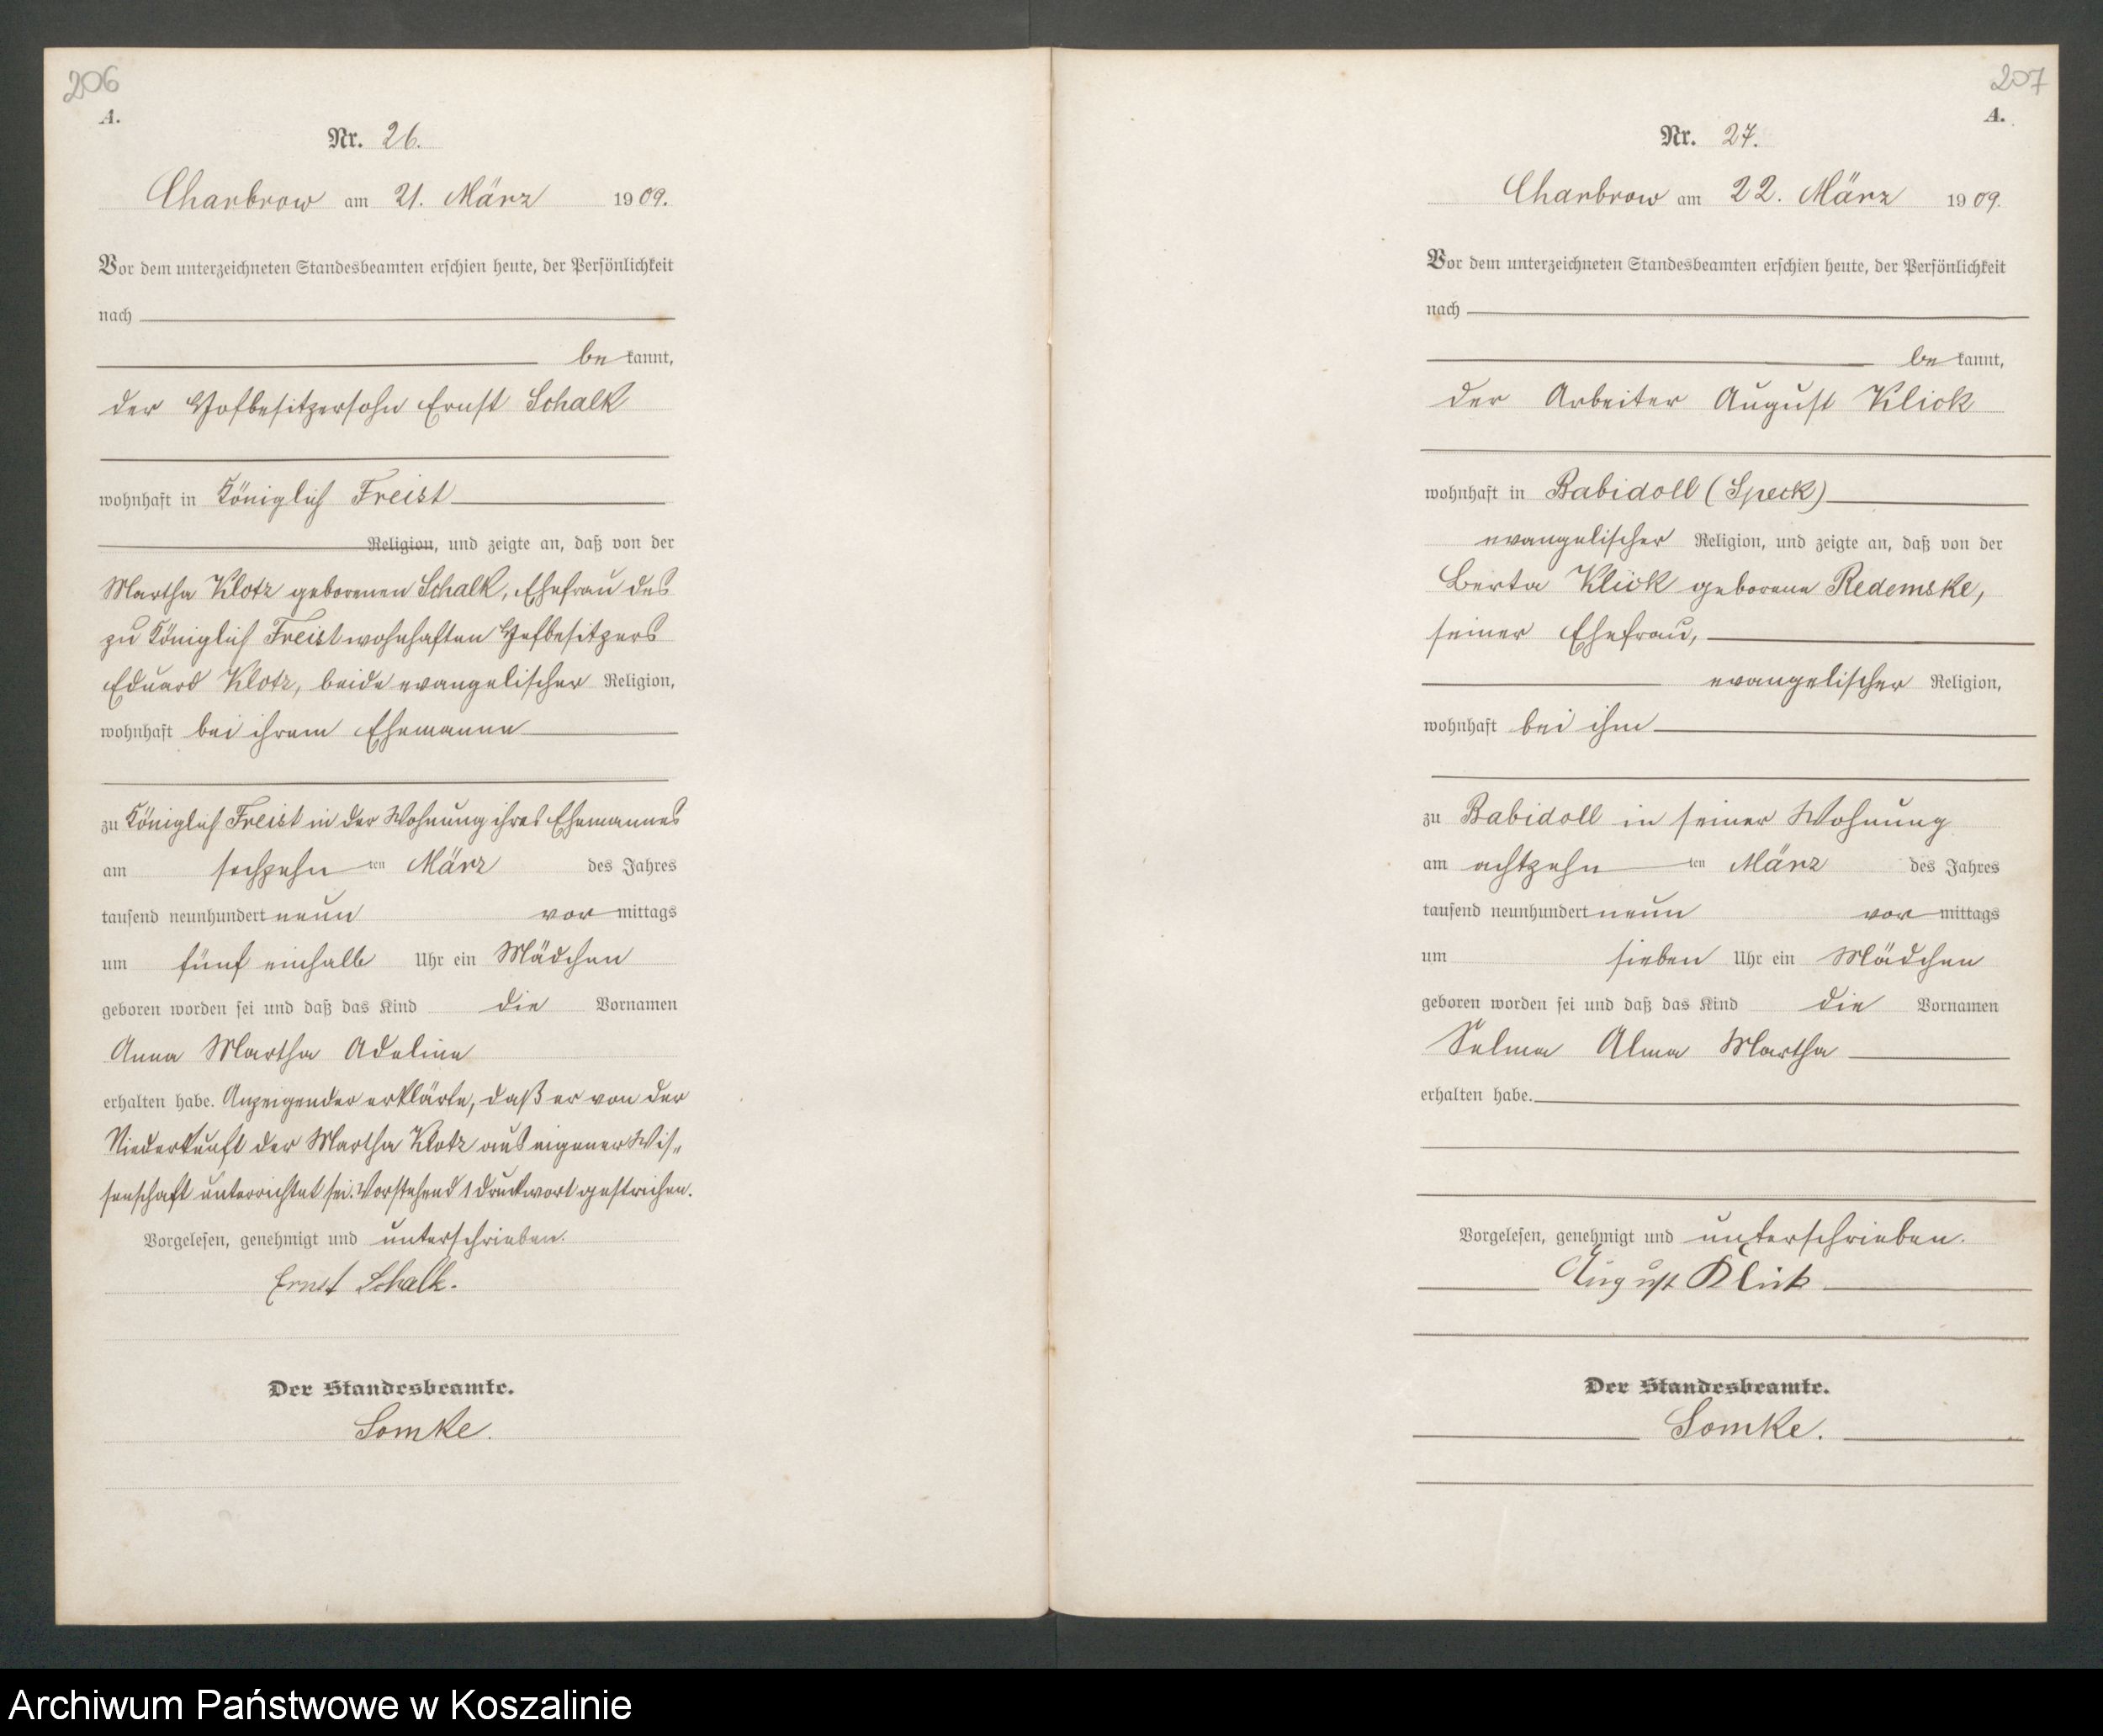 206
A.
Nr. 26.
Charbrow am 21. März 1909.
Vor dem unterzeichneten Standesbeamten erschien heute, der Persönlichkeit
nach
be kannt,
der Hofbesitzersohn Ernst Schalk
wohnhaft in Königlich Freist
Religion, und zeigte an, daß von der
Martha Klotz geborenen Schalk, Ehefrau des
zu Königlich Freist wohnhaften Hofbesitzers
Eduard Klotz, beide evangelischer Religion,
wohnhaft bei ihrem Ehemanne
zu Königlich Freist in der Wohnung ihres Ehemannes
am sechzehn ten März des Jahres
tausend neunhundert neun vor mittags
um fünf einhalb Uhr ein Mädchen
geboren worden sei und daß das Kind die Vornamen
Anna Martha Adeline
erhalten habe. Anzeigender erklärte, daß er von der
Niederkunft der Martha Klotz aus eigener Wis„
senschaft unterrichtet sei. Vorstehend 1 Druckwort gestrichen.
Vorgelesen, genehmigt und unterschrieben.
Ernst Schalk.
Der Standesbeamte.
Somke.
207
A.
Nr. 27.
Charbrow am 22. März 1909.
Vor dem unterzeichneten Standesbeamten erschien heute, der Persönlichkeit
nach
be kannt,
der Arbeiter August Klick
wohnhaft in Babidoll (Speck)
evangelischer Religion, und zeigte an, daß von der
Berta Klick geborene Redemske,
seiner Ehefrau,
evangelischer Religion,
wohnhaft bei ihm
zu Babidoll in seiner Wohnung
am achtzehn ten März des Jahres
tausend neunhundert neun vor mittags
um sieben Uhr ein Mädchen
geboren worden sei und daß das Kind die Vornamen
Selma Alma Martha
erhalten habe.
Vorgelesen, genehmigt und unterschrieben.
August Klick
Der Standesbeamte.
Somke.
Archiwum Państwowe w Koszalinie